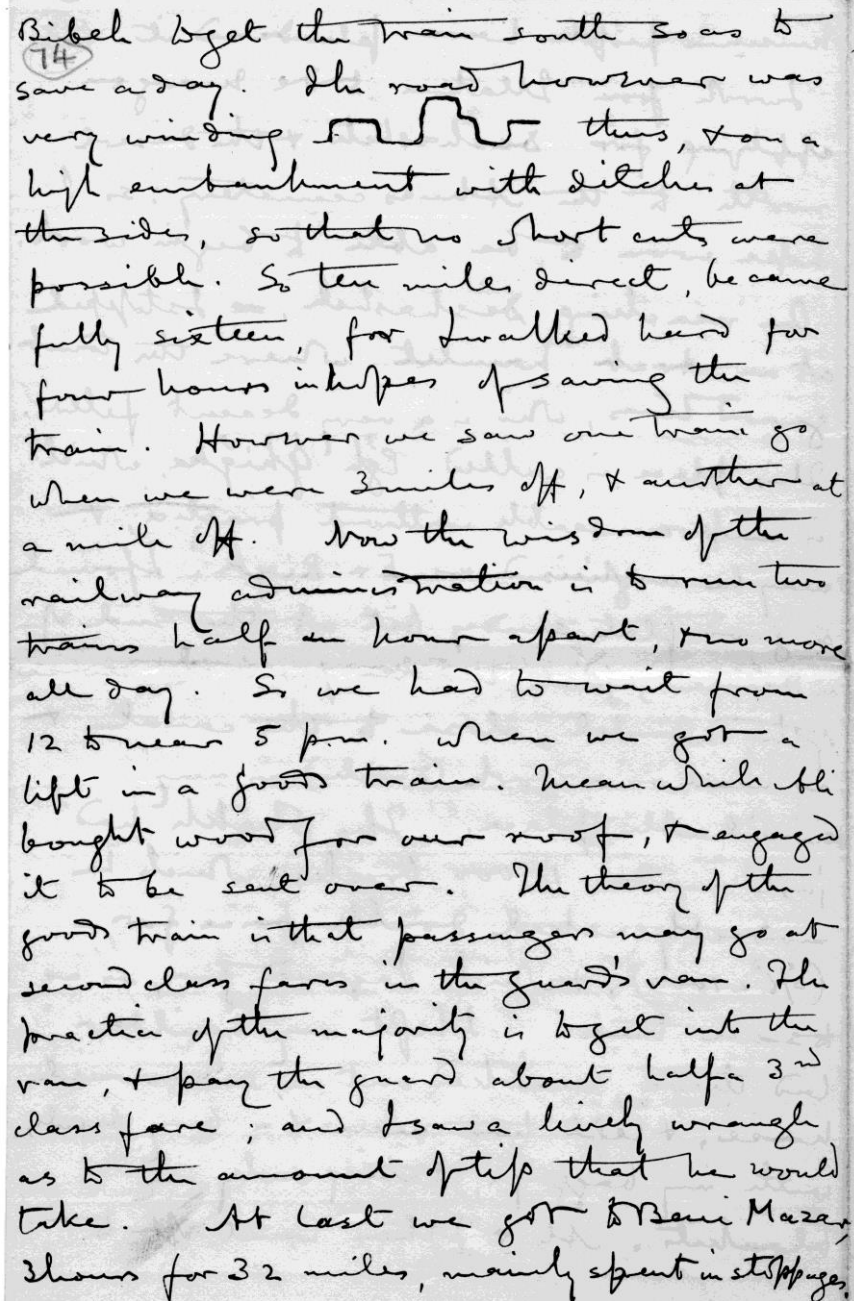 Bibeh to get the train south so as to
74
save a day. The road however was
very winding thus, & on a
high embankment with ditches at
the sides, so that no short cuts were
possible. So ten miles direct, became
fully sixteen, for I walked hard for
four hours in hopes of saving the
train. However we saw one train go
when we were 3 miles off, & another at
a mile off. Now the wisdom of the
railway administration is to run two
trains half an hour apart, & no more
all day. So we had to wait from
12 to near 5 p.m. when we got a
lift in a goods train. Meanwhile Ali
bought wood for our roof, & engaged
it to be sent over. The theory of the
goods train is that passengers may go at
second class fares in the guard's van. The
practice of the majority is to get into the
van, & pay the guard about half a 3rd
class fare; and I saw a lively wrangle
as to the amount of tip that he would
take. At last we got to Beni Mazar,
3 hours for 32 miles, mainly spent in stoppages.